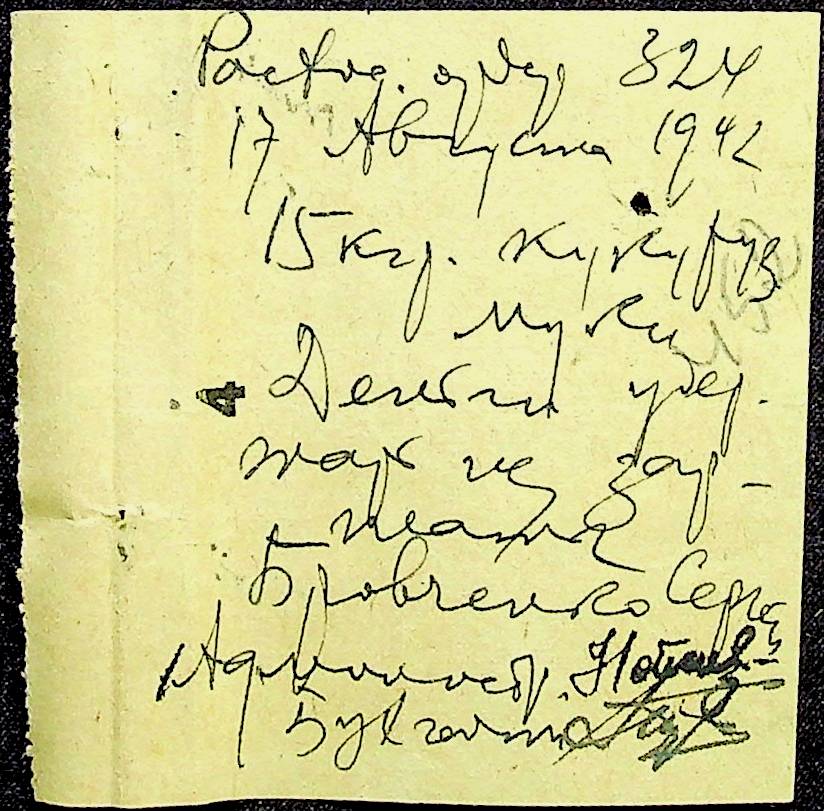 Расход. ордер 324
17 Августа 1942
15 кгр. кукуруз
муки
Деньги удер-
жать из зар-
платы
Бровченко Сергей
Администр.
Бухгалтер